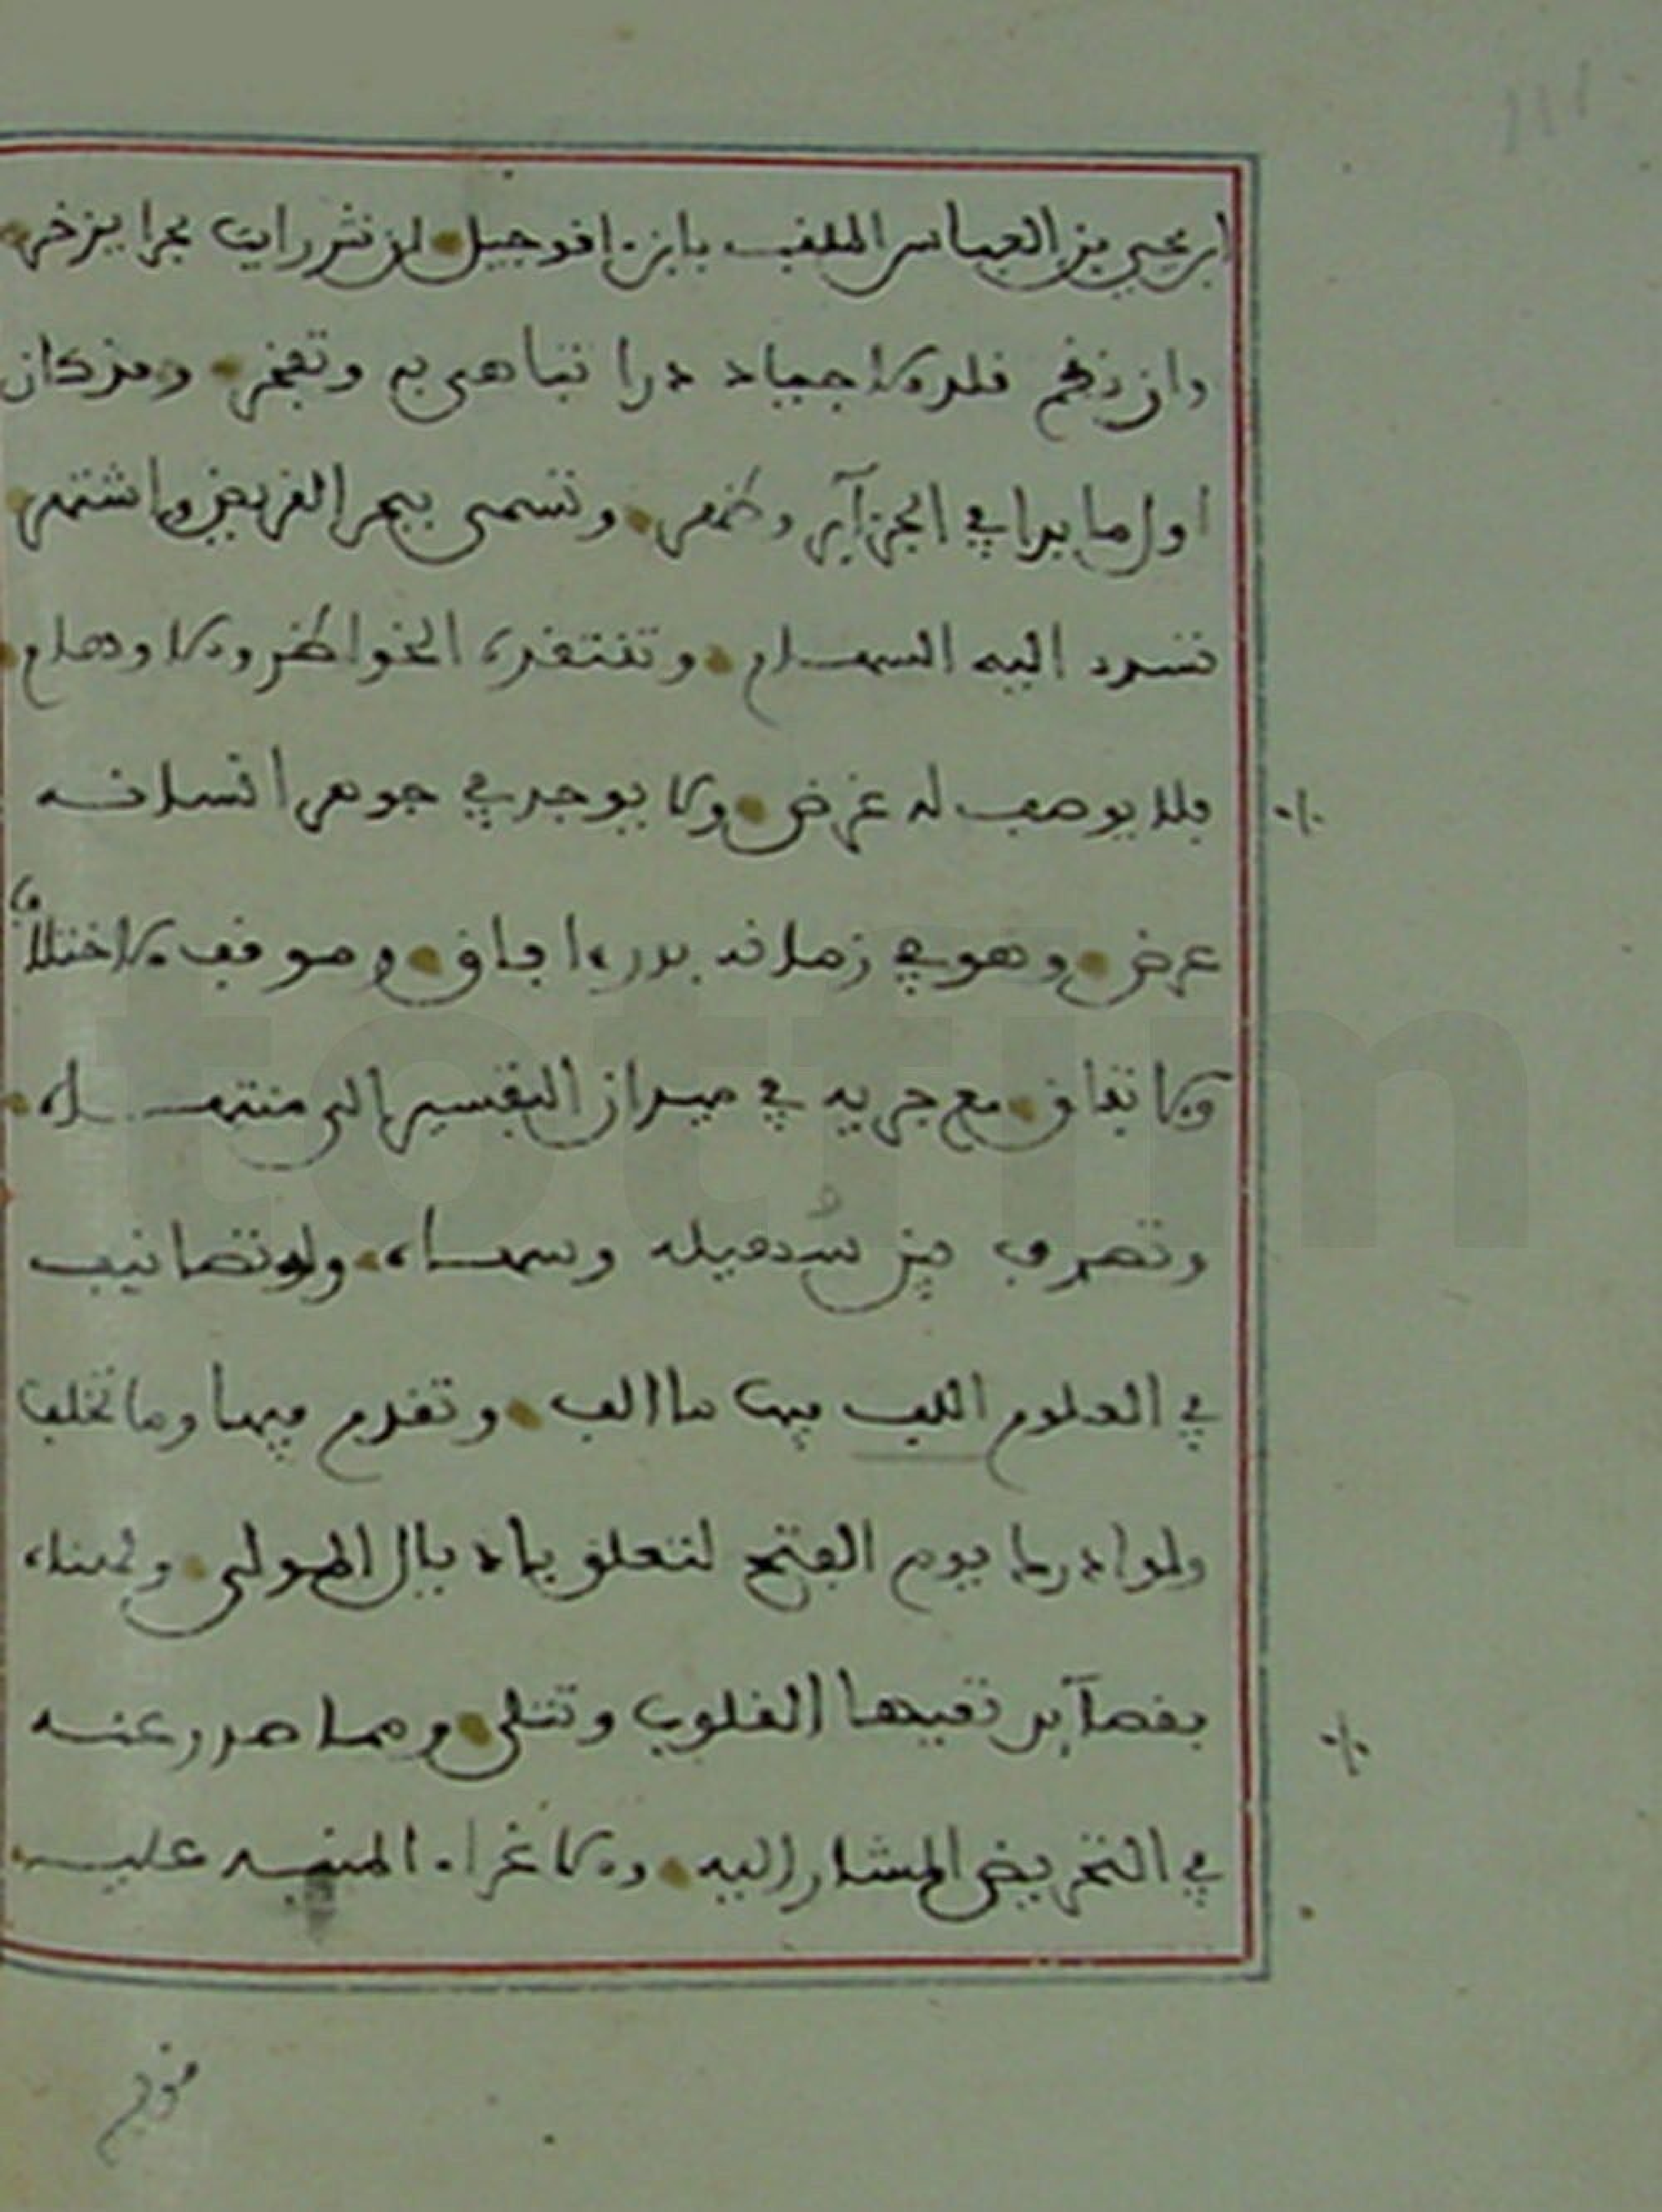 ابن يحيى بن العباس الملقب بابن اقوجيل لن نثر رايت بحرا يزخر
وان نظم قلد الاجياد درا تتباهى به وتفخر ومن كان
اول ما بدا في الجزاير وظهر وتسمى ببحر القريض واشتهر
تسرد اليه السماع وتفتقر الخواطر والاودهاع
فلا يوصف له غرض ولا يوجد في جوهر انسانه
عرض وهو في زمانه بدر افاق وموقف الاختلاف
والاتفاق مع جريه في ميدان التفسير الى منتهاه
وتصرف بين سهيله وسماه وله تصانيف
في العلوم الف فيها ما الف وتقدم فيها وما تخلف
ولو ادركها يوم الفتح لتعلق باذيال المولى وهناه
بقصاير تفيدها القلوب وتتلى ومما صدر عنه
في التحريض المشار اليه والاغراء المنبه عليه
111
totfim